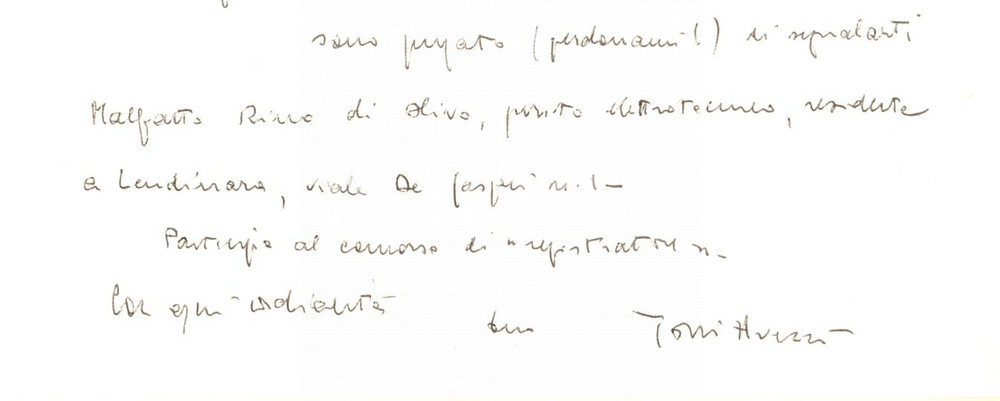 sono pregato (perdonami!) di segnalarti
Malfatto Rino di Olivo, perito elettrotecnico, residente
a Lendinara, viale De Gasperi n. 1 -
Partecipa al concorso di "registratore".
Con ogni cordialità
tuo Toni Avezzù